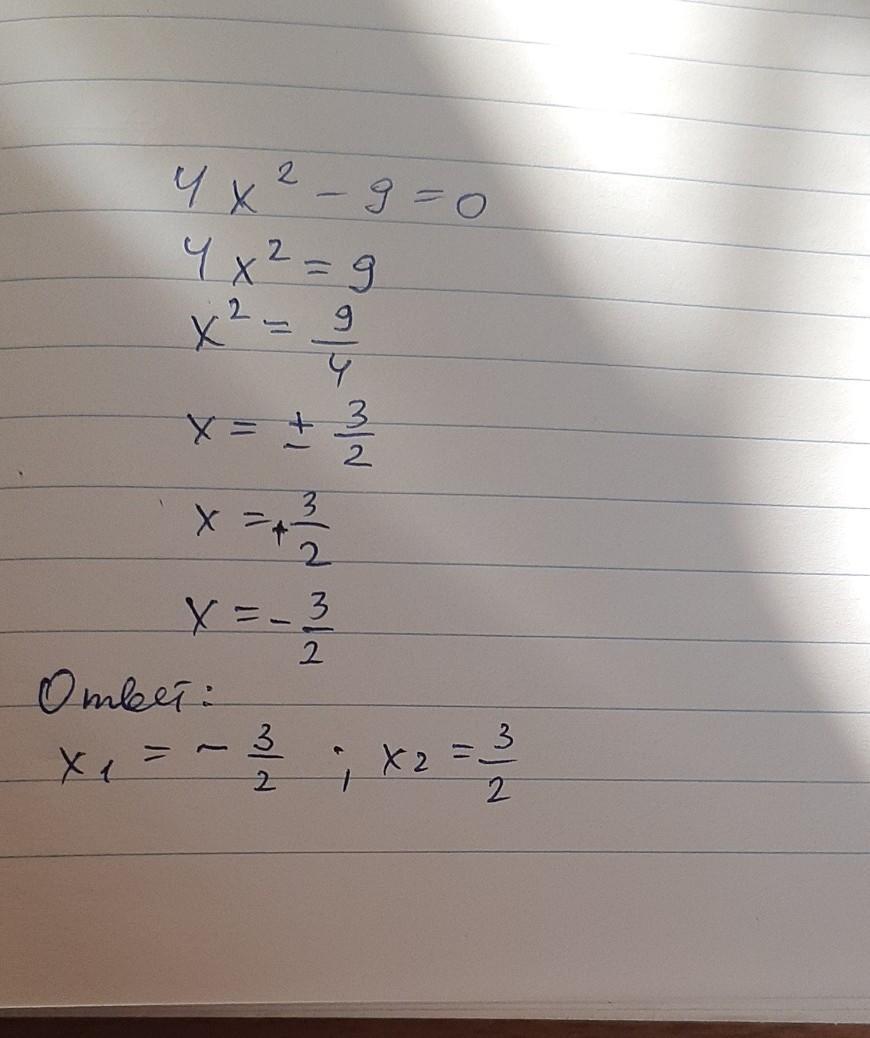 4x² - 9 = 0
4x² = 9
x² = 9/4
x = ± 3/2
x = + 3/2
x = - 3/2
Ответ:
x₁ = - 3/2 ; x₂ = 3/2